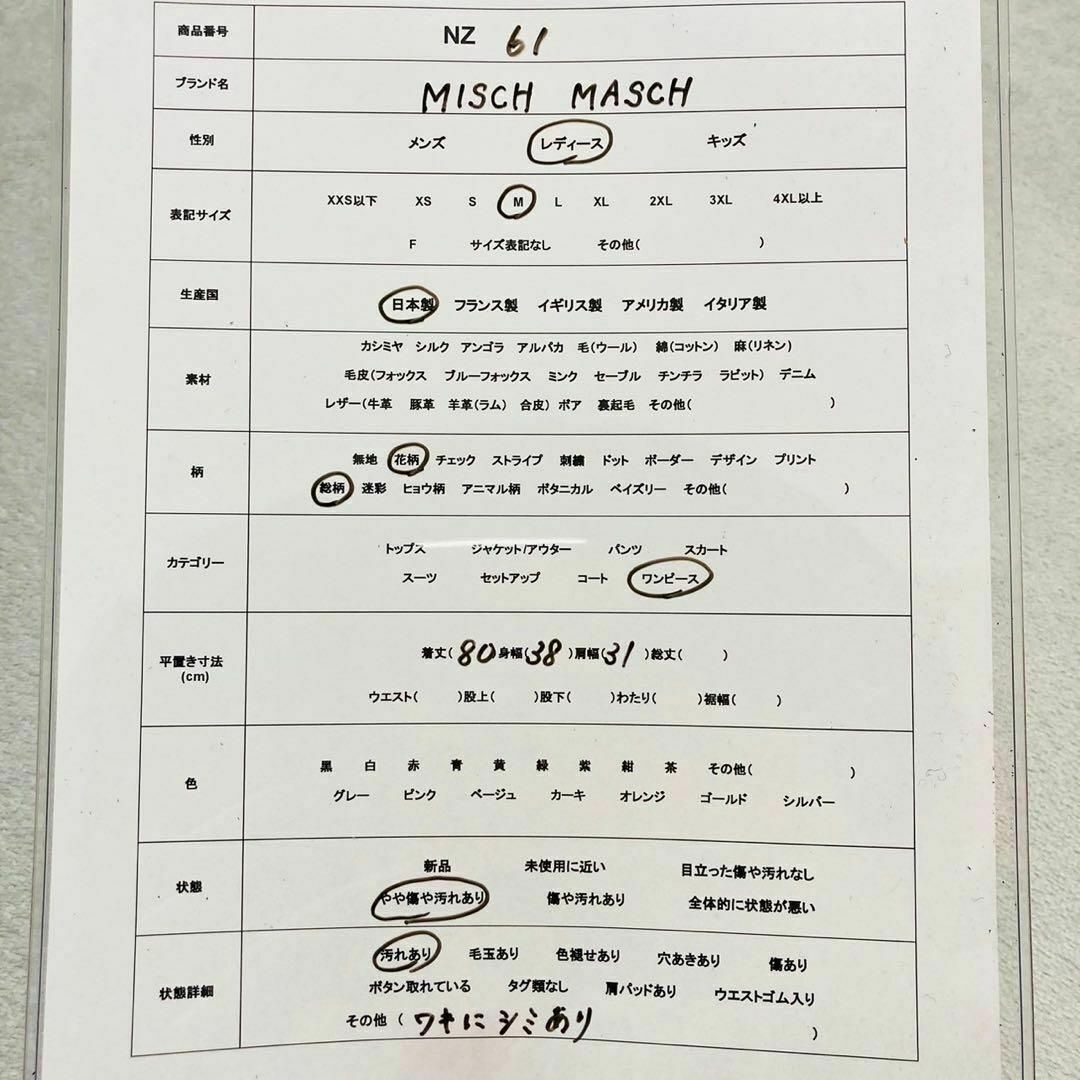 商品番号 NZ 61
ブランド名 MISCH MASCH
性別 メンズ レディース キッズ
表記サイズ XXS以下 XS S M L XL 2XL 3XL 4XL以上
F サイズ表記なし その他( )
生産国 日本製 フランス製 イギリス製 アメリカ製 イタリア製
カシミヤ シルク アンゴラ アルパカ 毛(ウール) 綿(コットン) 麻(リネン)
素材 毛皮(フォックス ブルーフォックス ミンク セーブル チンチラ ラビット) デニム
レザー(牛革 豚革 羊革(ラム) 合皮) ボア 裏起毛 その他( )
柄 無地 花柄 チェック ストライプ 刺繍 ドット ボーダー デザイン プリント
総柄 迷彩 ヒョウ柄 アニマル柄 ボタニカル ペイズリー その他( )
カテゴリー トップス ジャケット/アウター パンツ スカート
スーツ セットアップ コート ワンピース
平置き寸法 着丈(80 身幅(38 )肩幅(31 )総丈( )
(cm) ウエスト( )股上( )股下( )わたり( )裾幅( )
色 黒 白 赤 青 黄 緑 紫 紺 茶 その他( )
グレー ピンク ベージュ カーキ オレンジ ゴールド シルバー
状態 新品 未使用に近い 目立った傷や汚れなし
やや傷や汚れあり 傷や汚れあり 全体的に状態が悪い
汚れあり 毛玉あり 色褪せあり 穴あきあり 傷あり
状態詳細 ボタン取れている タグ類なし 肩パッドあり ウエストゴム入り
その他 ( ワキにシミあり )